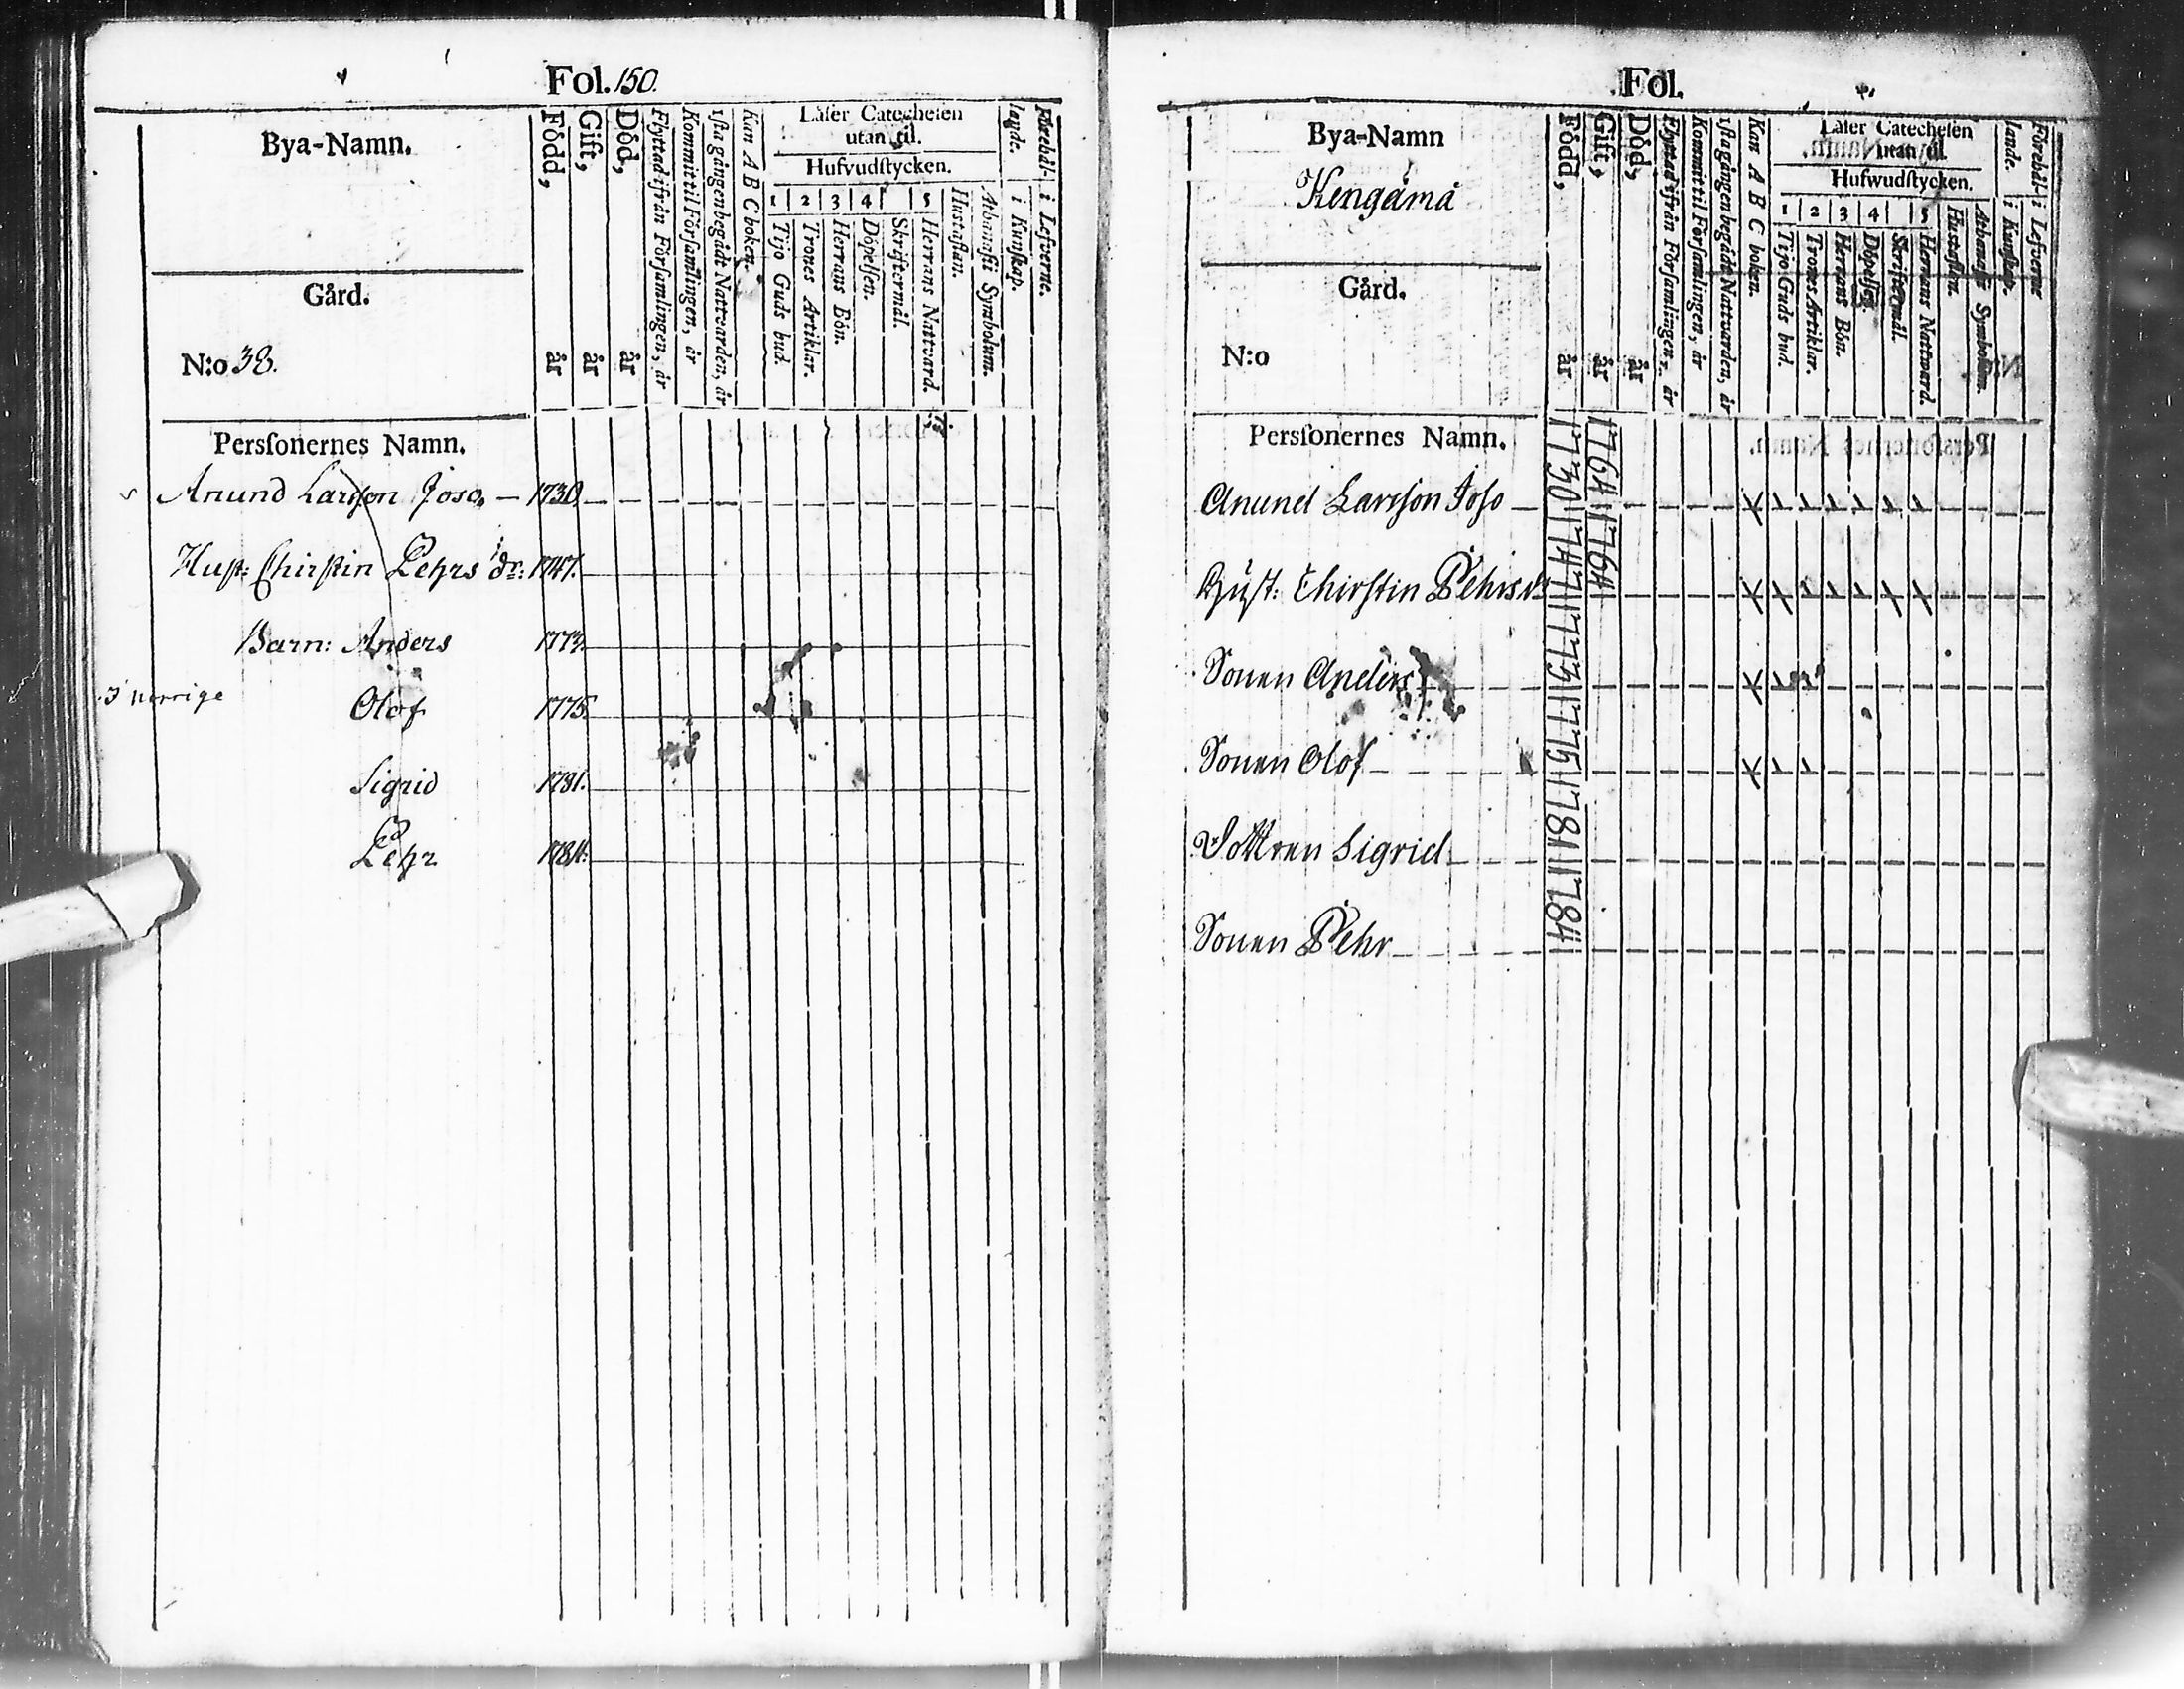 Fol. 150.
Bya-Namn.
Gård.
N:o 38.
Född, år
Gift, år
Död, år
Flyttad ifrån Församlingen, år
Kommit til Församlingen, år
1sta gången begådt Nattvarden, år
Kan A B C boken.
Läser Catechesen
utan til.
Hufvudstycken.
1 2 3 4 5
Tijo Guds bud.
Trones Artiklar.
Herrans Bön.
Döpelsen.
Skriftermål.
Herrans Nattvard.
Hustaflan.
Athanasii Symbolum.
i Kunskap.
Förehållande.
i Lefverne.
Personernes Namn.
Anund Larsson Joso, 1730.
Hust: Chirstin Pehrs dr: 1747.
Barn: Anders 1773.
I norrige
Olof 1775.
Sigrid 1781.
Pehr 1784.
Fol.
Bya-Namn
Kengämä
Gård.
N:o
Född, år
Gift, år
Död, år
Flyttad ifrån Församlingen, år
Kommit til Församlingen, år
1sta gången begådt Nattvarden, år
Kan A B C boken.
Läser Catechesen
utan til.
Hufwudstycken.
1 2 3 4 5
Tijo Guds bud.
Trones Artiklar.
Herrans Bön.
Döpelsen.
Skriftermål.
Herrans Nattward.
Hustaflan.
Athanasii Symbolum.
i Kunskap.
Förehållande.
i Lefverne
Personernes Namn.
Anund Larsson Joso 1730 1764
Hust: Chirstin Pehrs dr 1747 1764
Sonen Anders 1773
Sonen Olof 1775
Dottren Sigrid 1781
Sonen Pehr 1784